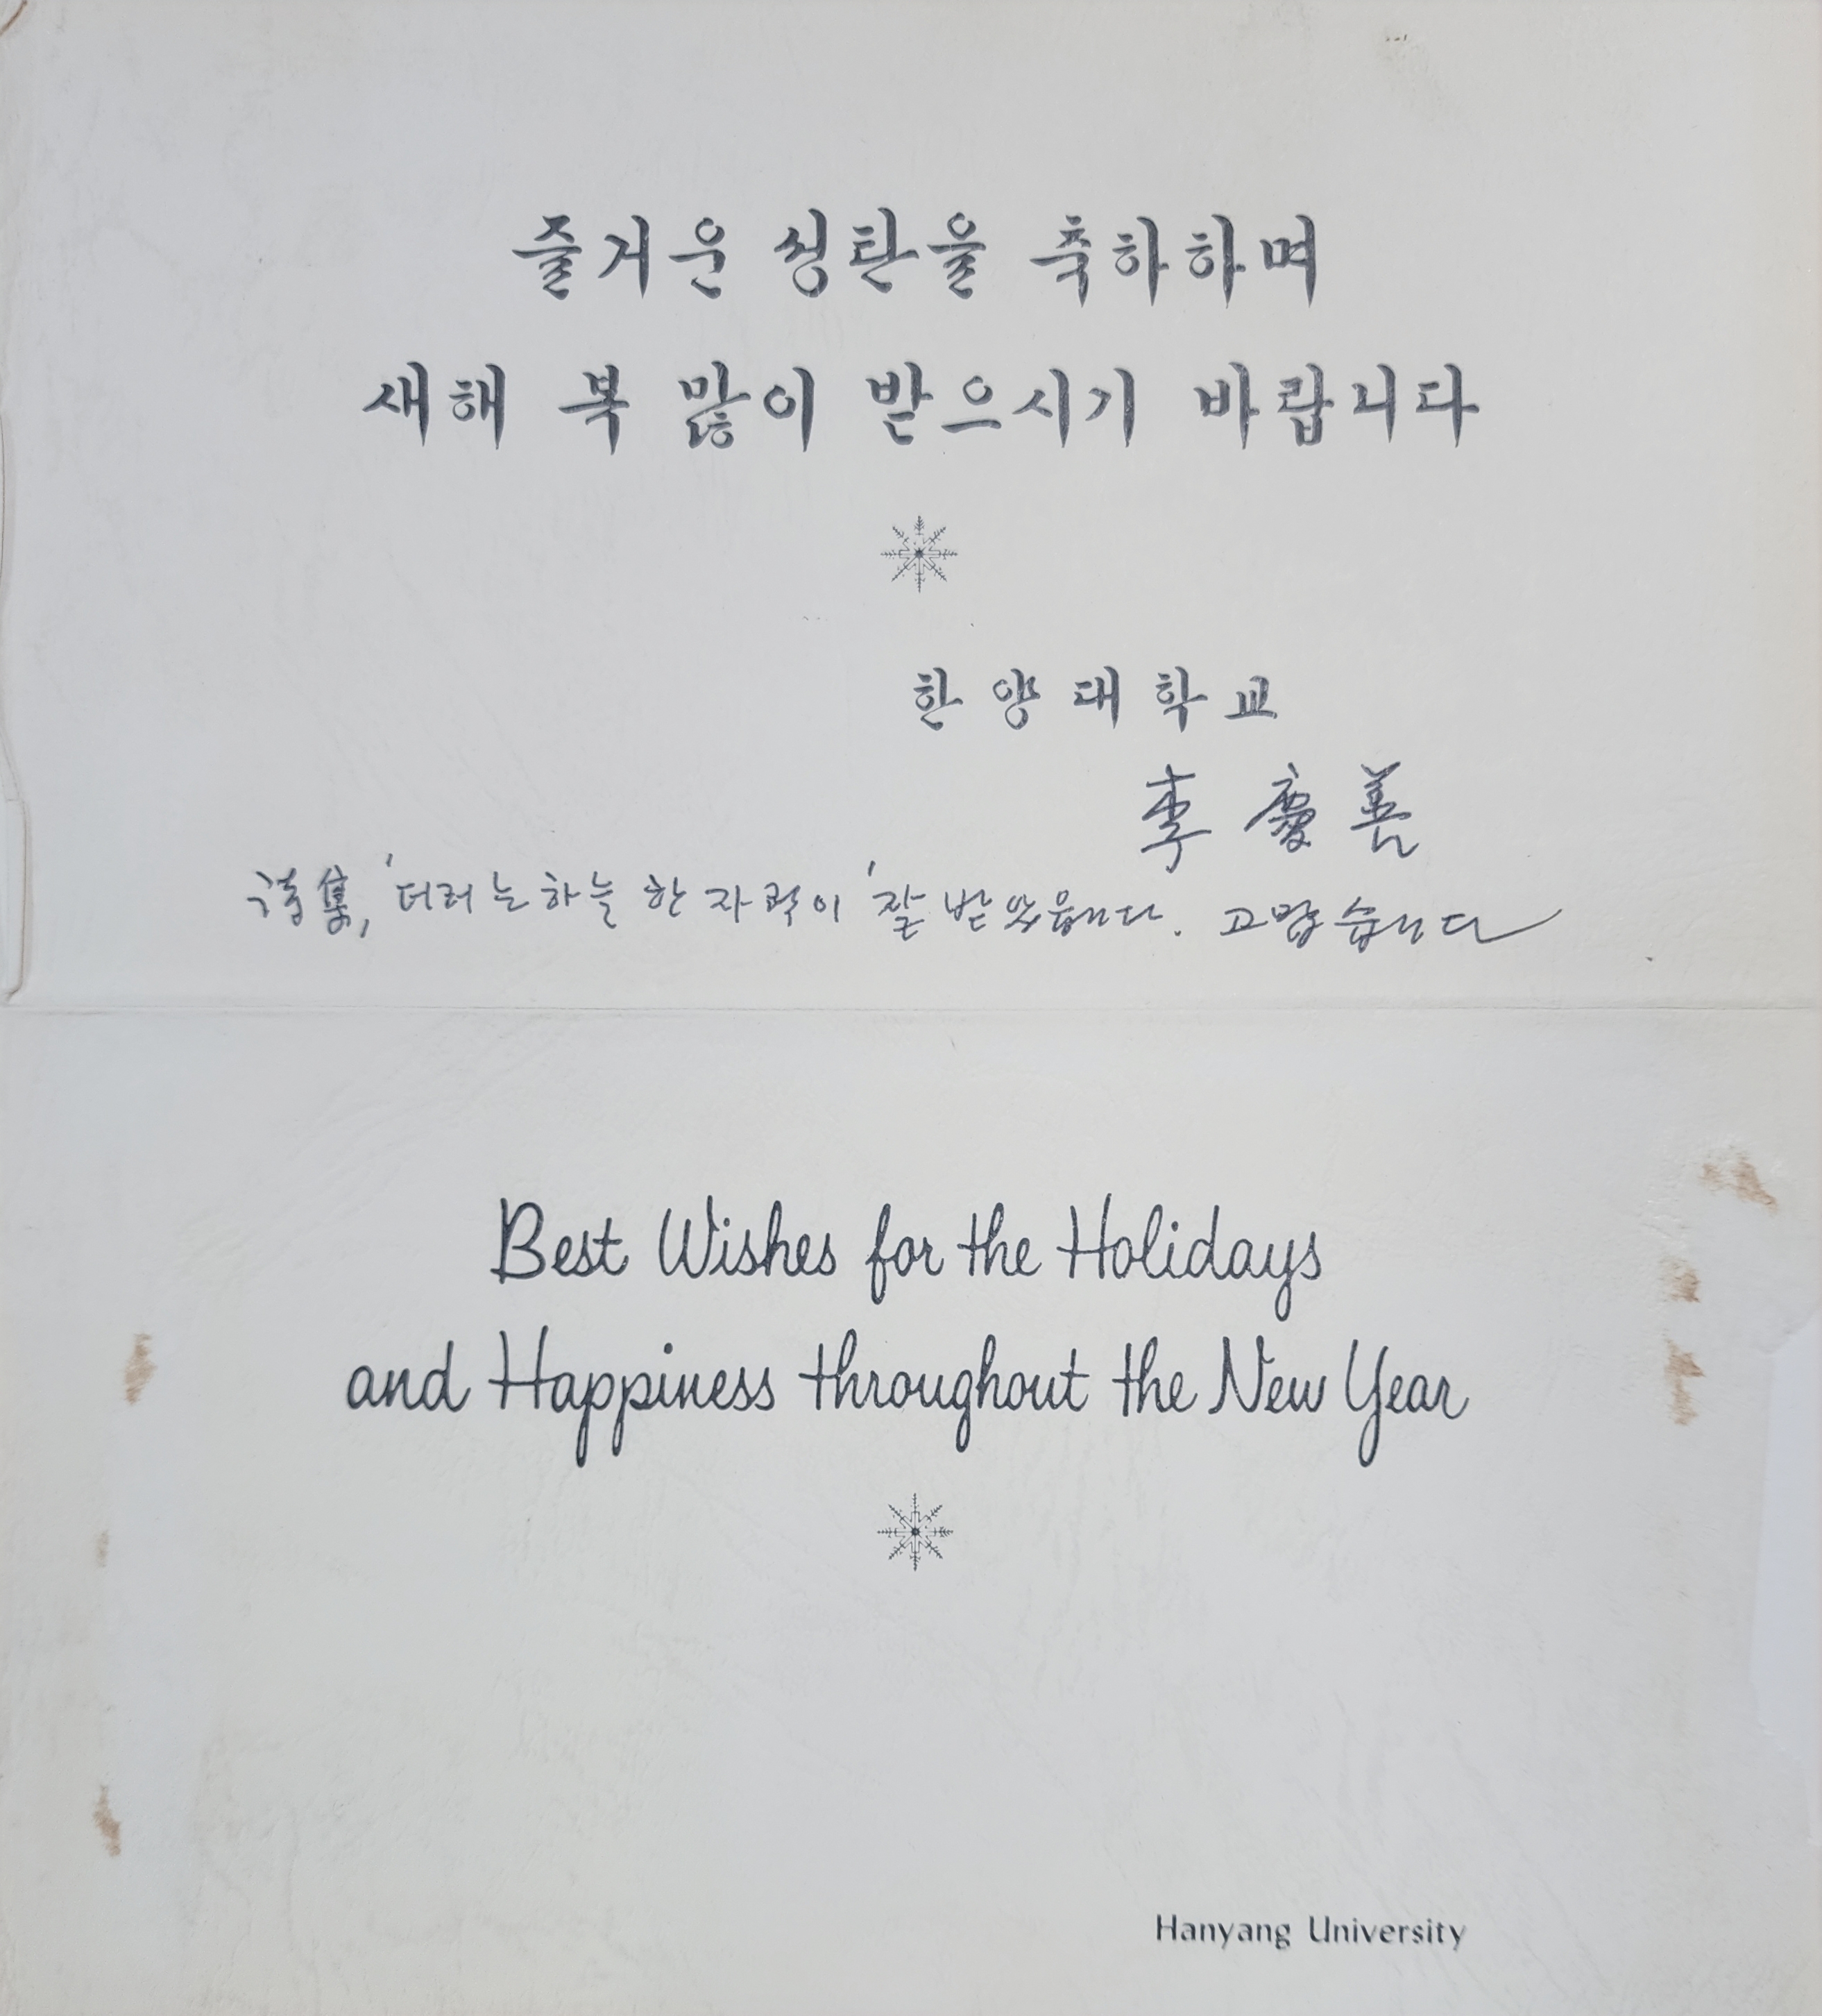 즐거운 성탄을 축하하며
새해 복 많이 받으시기 바랍니다
한양대학교
李慶善
詩集, '더러는 하늘 한 자락이' 잘 받았읍니다. 고맙습니다
Best Wishes for the Holidays
and Happiness throughout the New Year
Hanyang University